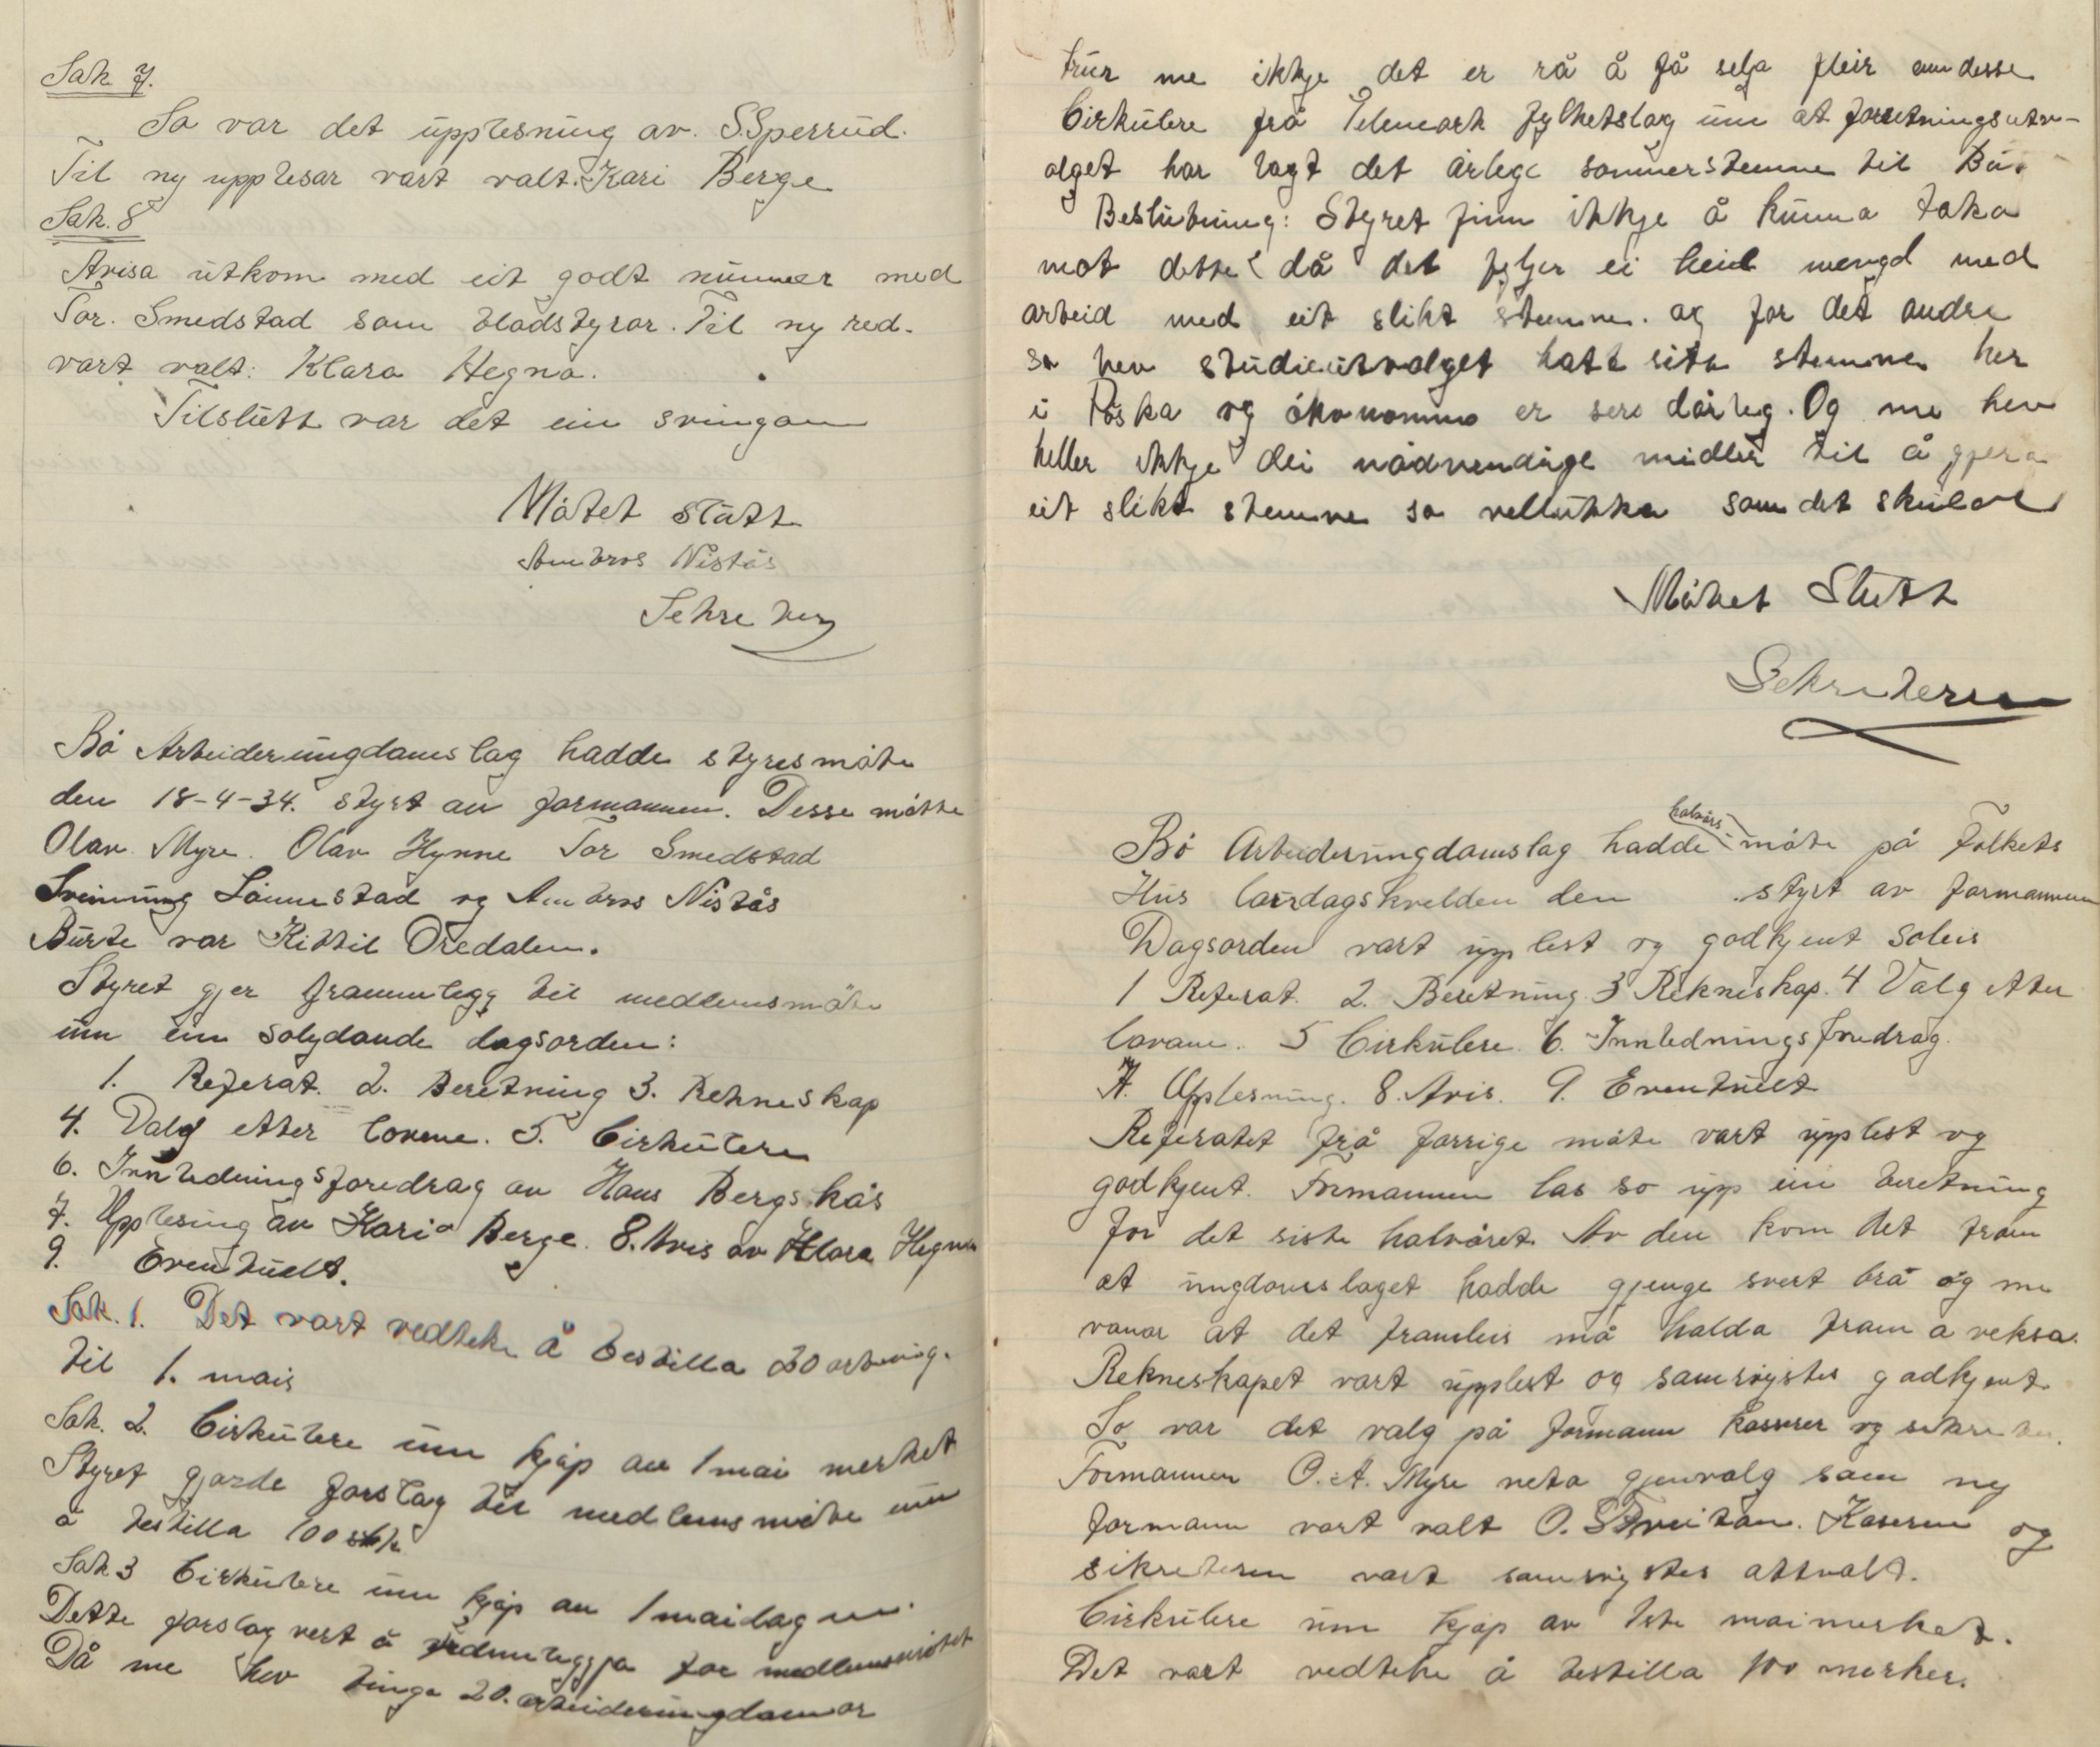 Sak 7.
So var det upplesning av. S.Sperrud.
Til ny upplesar vart valt. Kari Berge
Sak. 8
Avisa utkom med eit godt nummer med
Tor. Smedstad som bladstyrar. Til ny red.
vart valt: Klara Hegna.
Tilslutt var det ein svingom
Møtet slutt
Ambros Nistås
Sekretær
Bø Arbeiderungdomslag hadde styresmøte
den 18-4-34. styrt av formannen. Desse møtte
Olav Myre. Olav Hynne Tor Smedstad
Sveinung Lønnestad og Ambros Nistås
Burte var Kittil Oredalen.
Styret gjer frammlegg til medlemsmøte
um ein solydande dagsorden:
1. Referat. 2. Beretning 3. Rekneskap
4. Valg etter lovene. 5. Cirkulere
6. Innledningsforedrag av Hans Bergskås
7. Upplesing av Kari Berge. 8. Avis av Klara Hegna
9. Eventuelt.
Sak. 1. Det vart vedteke å bestilla 20 arb.ung.
til 1. mais
Sak. 2. Cirkulere um kjøp av 1 mai merket
Styret gjorde forslag til medlemsmøte um
å bestilla 100 stk
Sak 3 Cirkulere um kjøp av 1 maidag
Dette forslag vert å frammleggja for medlemsmøtet
Då me hev tinga 20. arbeiderungdomar
trur me ikkje det er rå å få selja fleir enn desse
Cirkulere frå Telemark fylketslag um at forretningsutv-
alget har lagt det årlege sommerstemne til Bø.
Beslutning: Styret finn ikkje å kunna taka
mot dette då det fylgjer ei heil mengd med
arbeid med eit slikt stemne. og for det andre
so hev studieutvalget hatt sitt stemne her
i Påska og økonomien er sers dårleg. Og me hev
heller ikkje dei nødvendige midler til å gjera
eit slikt stemne so vellukka som det skulde
Møtet Slutt
Sekreteren
Bø Arbeiderungdomslag hadde halvårs-møte på Folkets
Hus laurdagskvelden den styrt av formannen
Dagsorden vart upplest og godkjent soleis
1 Referat. 2. Beretning. 3 Rekneskap. 4 Valg etter
lovane. 5 Cirkulere. 6. Innledningsforedrag.
7. Upplesning. 8. Avis. 9. Eventuelt
Referatet frå forrige møte vart upplest og
godkjent. Formannen las so upp ein beretning
for det siste halvåret. Av den kom det fram
at ungdomslaget hadde gjenge svert bra og me
vonar at det framleis må halda fram a veksa.
Rekneskapet vart upplest og samrøystes godkjent.
So var det valg på formann kasserer og sekreter.
Formannen O. A. Myre neta gjenvalg som ny
formann vart valt O. Kaseren og
sikreteren vart samrøystes attvalt.
Cirkulere um kjøp av 1ste maimerket.
Det vart vedteke å bestilla 100 merker.